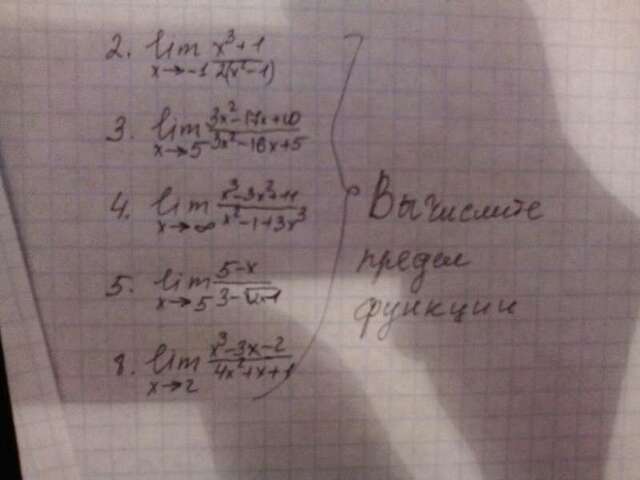 2. lim x→-1 (x³+1)/(2(x²-1))
3. lim x→5 (3x²-17x+10)/(3x²-16x+5)
4. lim x→∞ (x³-3x²+11)/(x²-1+3x³)
5. lim x→5 (5-x)/(3-√(2x-1))
8. lim x→2 (x³-3x-2)/(4x²+x+1)
Вычислите
предел
функции